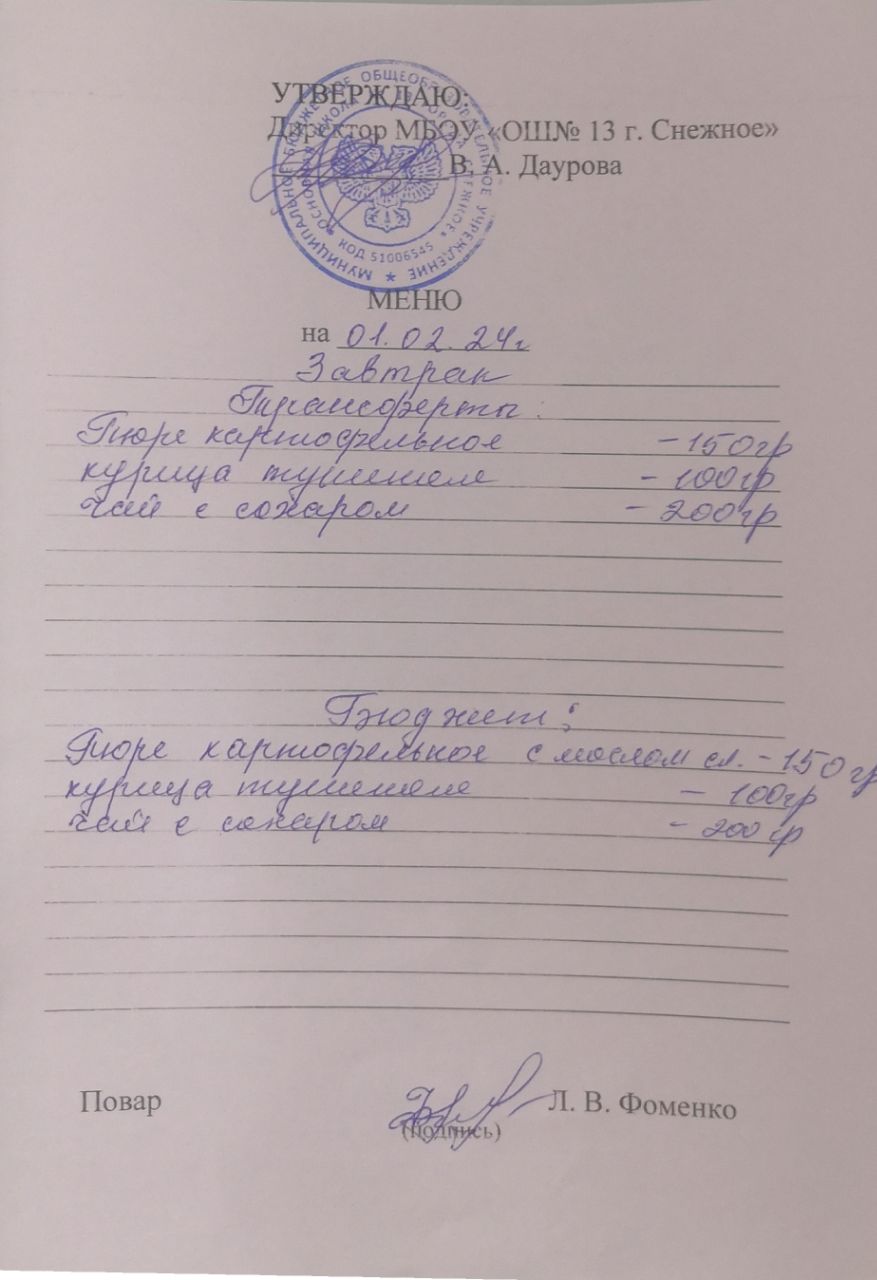 УТВЕРЖДАЮ:
Директор МБОУ «ОШ№ 13 г. Снежное»
В. А. Даурова
МУНИЦИПАЛЬНОЕ БЮДЖЕТНОЕ ОБЩЕОБРАЗОВАТЕЛЬНОЕ УЧРЕЖДЕНИЕ
КОД 51006545
МЕНЮ
на 01.02.24г
Завтрак
Трансферты:
Пюре картофельное - 150гр
курица тушеная - 100гр
чай с сахаром - 200гр
Бюджет:
Пюре картофельное с маслом сл. - 150гр
курица тушеная - 100гр
чай с сахаром - 200гр
Повар Л. В. Фоменко
(подпись)